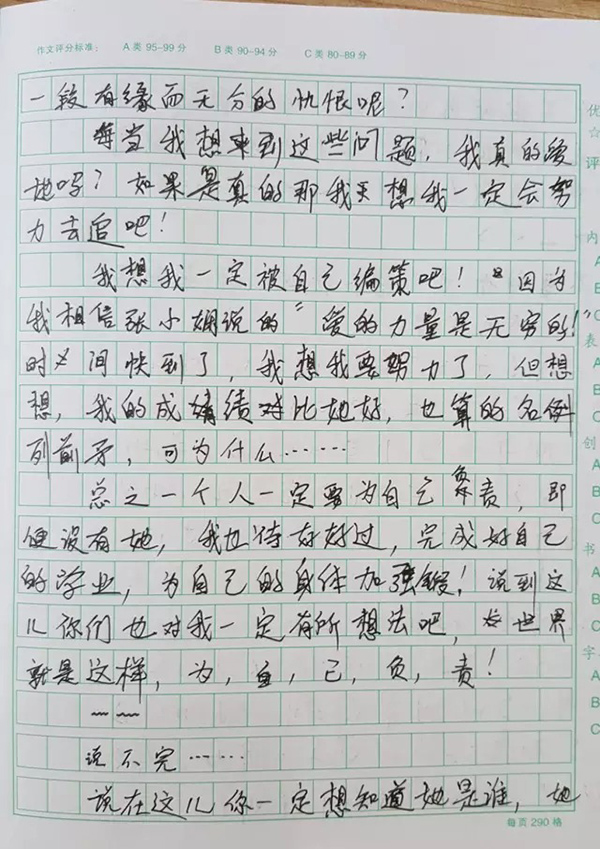 作文评分标准： A类 95-99分 B类 90-94分 C类 80-89分
一段有缘而无分的仇恨呢？
每当我想来到这些问题，我真的爱
她吗？如果是真的那我天想我一定会努
力去追吧！
我想我一定被自己编策吧！因为
我相信张小娴说的“爱的力量是无穷的！”
时间快到了，我想我要努力了，但想
想，我的成绩对比她好，也算的名例
列前矛，可为什么……
总之一个人一定要为自己负责，即
便没有她，我也待好好过，完成好自己
的学业，为自己的身体加强锻！说到这
儿你们也对我一定有所想法吧，世界
就是这样，为，自，己，负，责！
说不完……
说在这儿你一定想知道她是谁，她
每页 290 格
优
☆
评
内
A
B
C
表
A
B
C
创
A
B
C
书
A
B
C
字
A
B
C